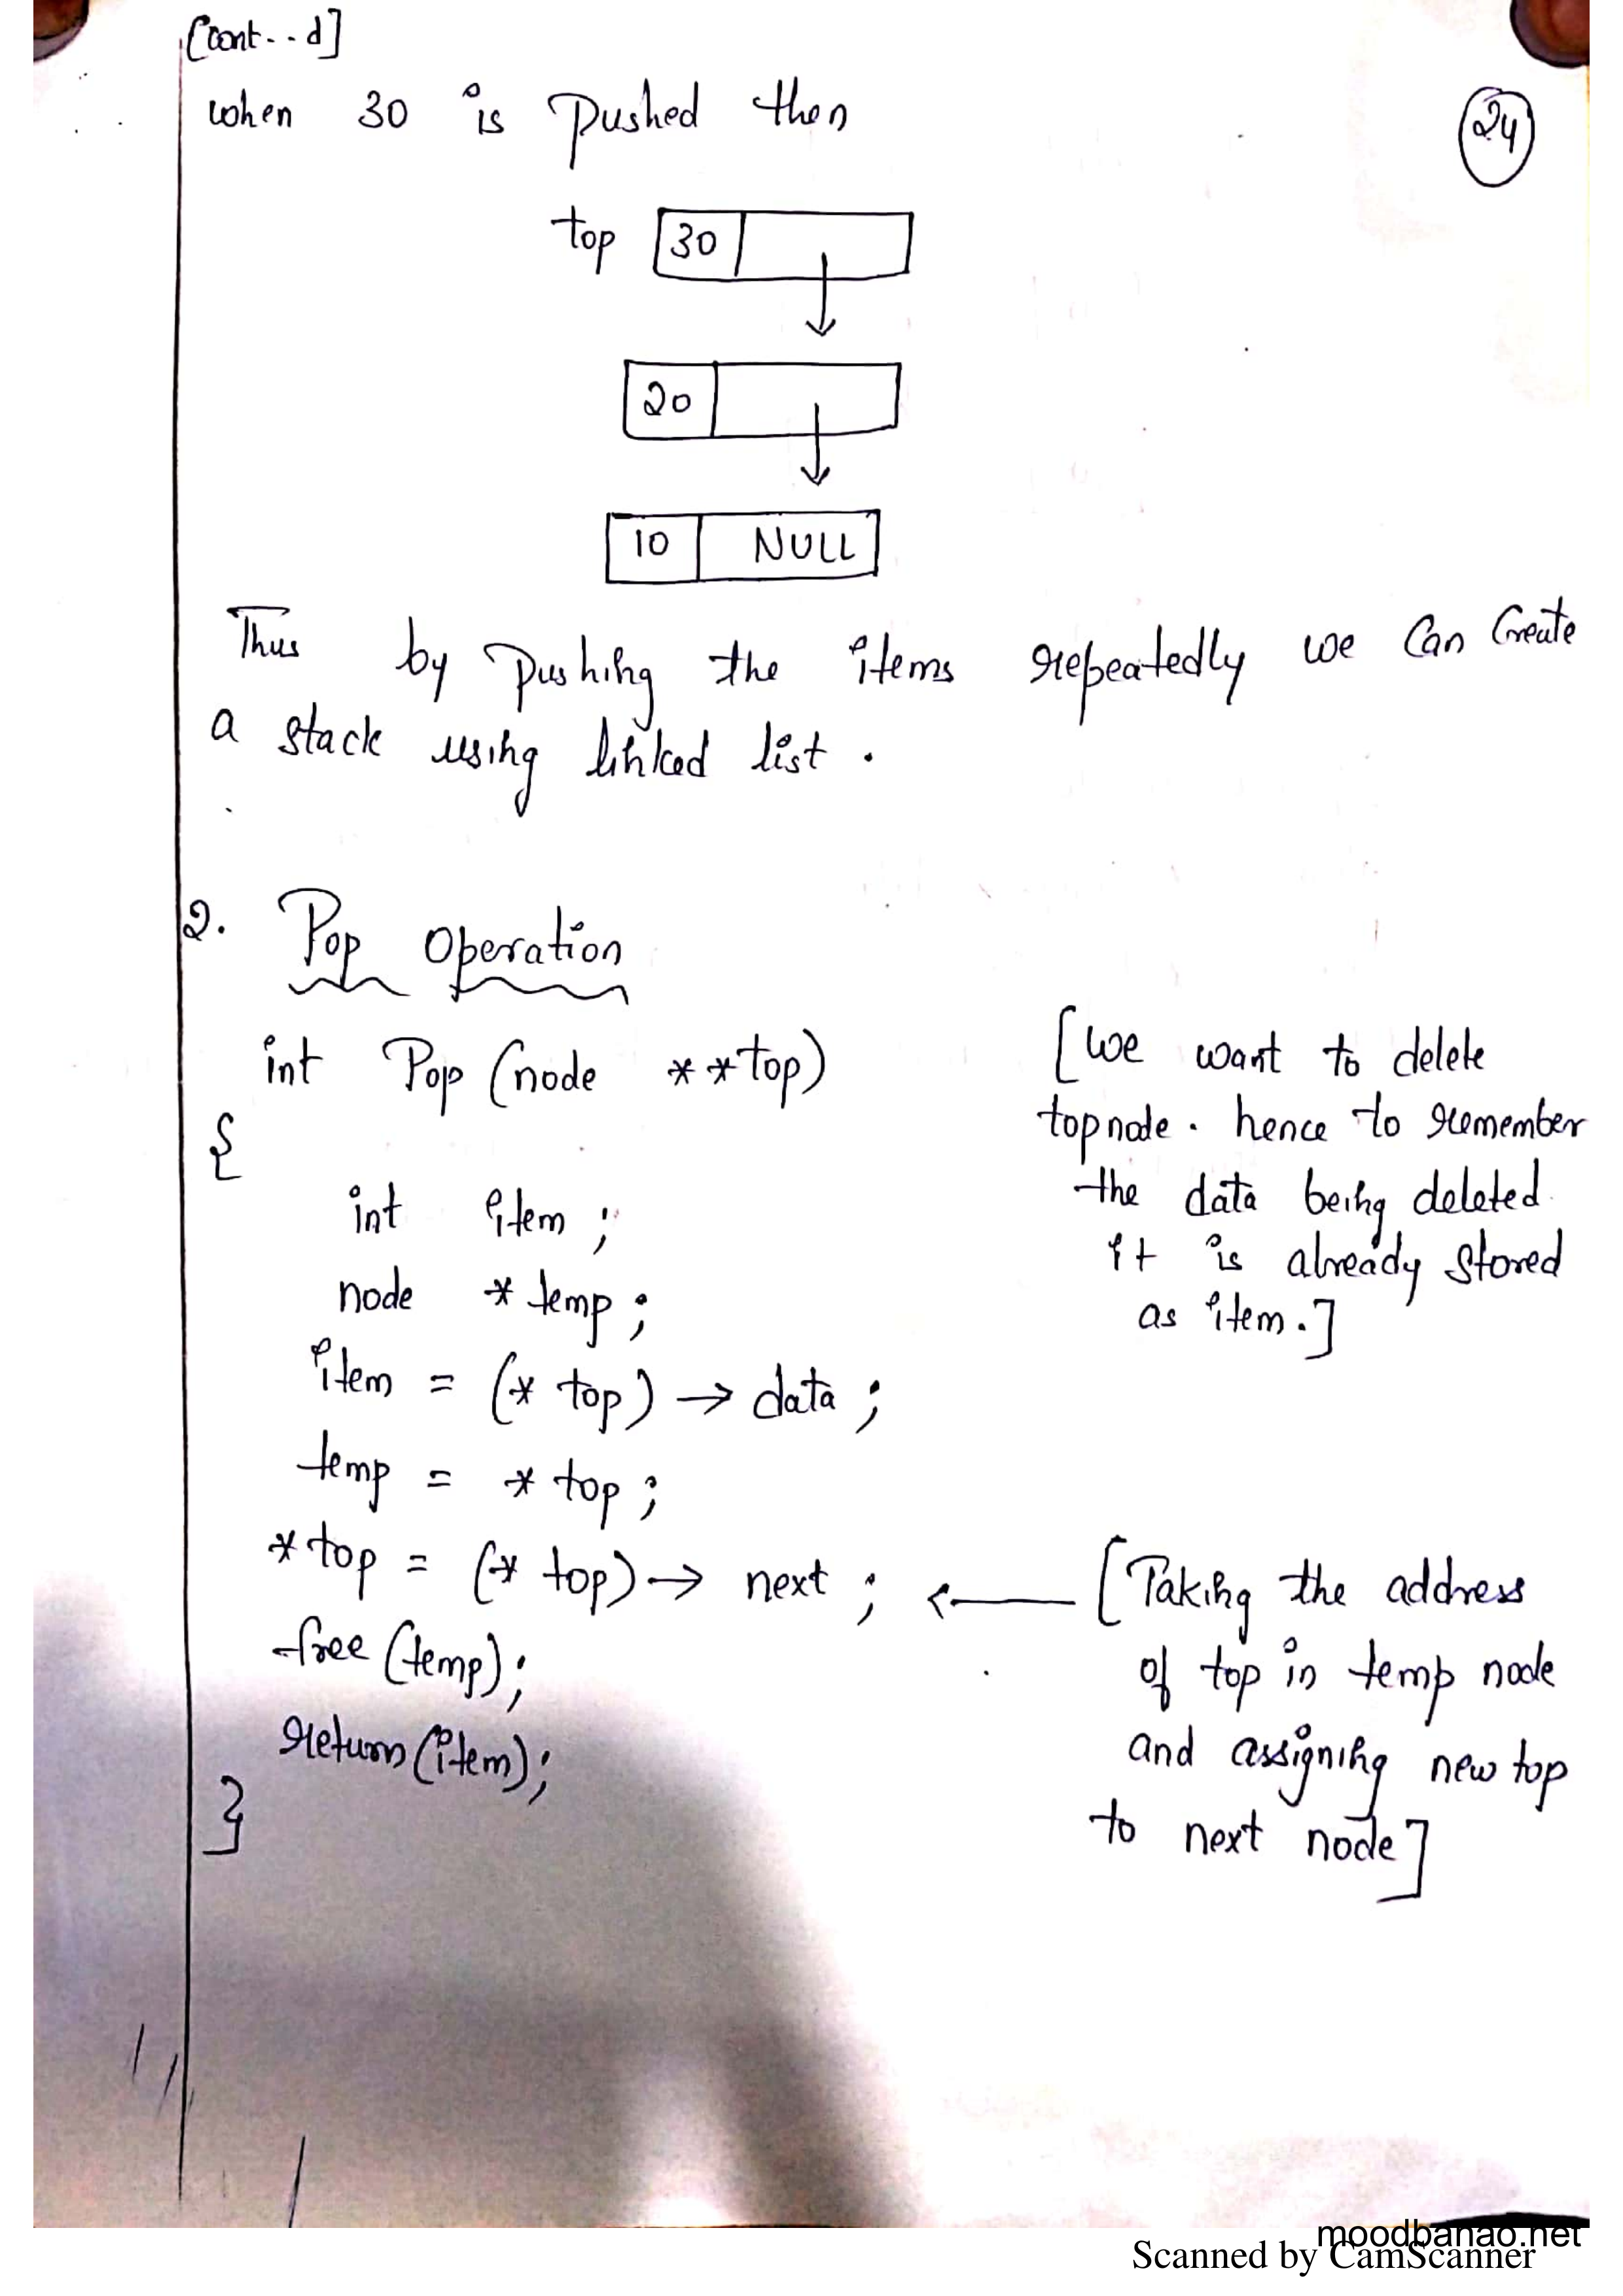 [Cont..d]
when 30 is pushed then
24
top 30
20
10 NULL
Thus by pushing the items repeatedly we can Create
a stack using linked list.
2. Pop Operation
int Pop (node **top)
{
int item;
node *temp;
item = (* top) → data;
temp = * top;
*top = (* top) → next;
free (temp);
return (item);
}
[We want to delete
top node. hence to remember
the data being deleted
it is already stored
as item.]
[Taking the address
of top in temp node
and assigning new top
to next node]
moodbanao.net
Scanned by CamScanner